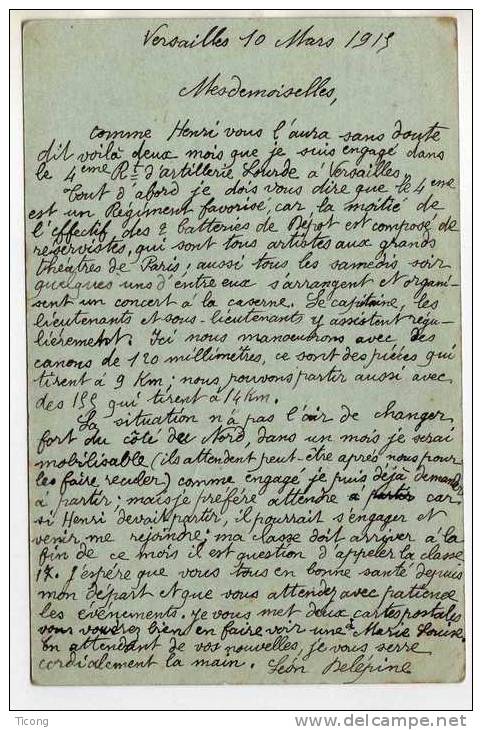 Versailles 10 Mars 1915
Mesdemoiselles,
comme Henri vous l'aura sans doute
dit voilà deux mois que je suis engagé dans
le 4ème Rt d'artillerie Lourde à Versailles.
Tout d'abord je dois vous dire que le 4ème
est un Régiment favorisé, car la moitié de
l'effectif des 2 batteries de Dépot est composé de
réservistes, qui sont tous artistes aux grands
théatres de Paris; aussi tous les samedis soir
quelques uns d'entre eux s'arrangent et organi-
sent un concert à la caserne. Le capitaine, les
lieutenants et sous-lieutenants y assistent régu-
lièrement. Ici nous manœuvrons avec des
canons de 120 millimètres, ce sont des pièces qui
tirent à 9 Km; nous pouvons partir aussi avec
des 155 qui tirent à 14 Km.
La situation n'a pas l'air de changer
fort du côté du Nord, dans un mois je serai
mobilisable (ils attendent peut-être après nous pour
les faire reculer) comme engagé je puis déjà demander
à partir; mais je préfère attendre à partir car
si Henri devait partir, il pourrait s'engager et
venir me rejoindre; ma classe doit arriver à la
fin de ce mois il est question d'appeler la classe
17. J'espère que vous tous en bonne santé depuis
mon départ et que vous attendez avec patience
les événements. Je vous met deux cartes postales
vous voudrez bien en faire voir une à Marie Louise.
En attendant de vos nouvelles, je vous serre
cordialement la main. Léon Delépine
Ticong
www.delcampe.net